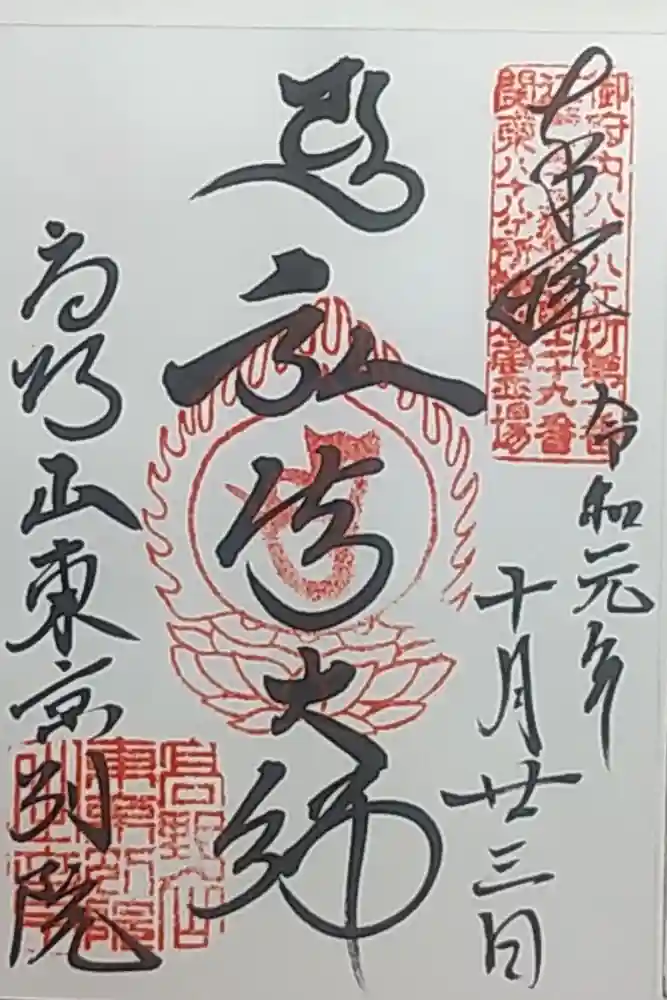 奉拝
令和元年
十月廿三日
弘法大師
高野山東京別院
御府内八十八ヶ所第一番
関東八十八ヶ所特別霊場
高野山
東京別院